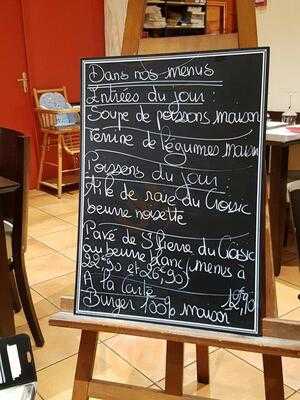 Dans nos menus
Entrées du jour :
Soupe de poissons maison
Terrine de légumes maison
Poissons du jour :
Aile de raie du Croisic
beurre noisette
Pavé de St Pierre du Croisic
au beurre blanc (menus à
22€90 et 26€90)
A la carte
Burger 100% maison